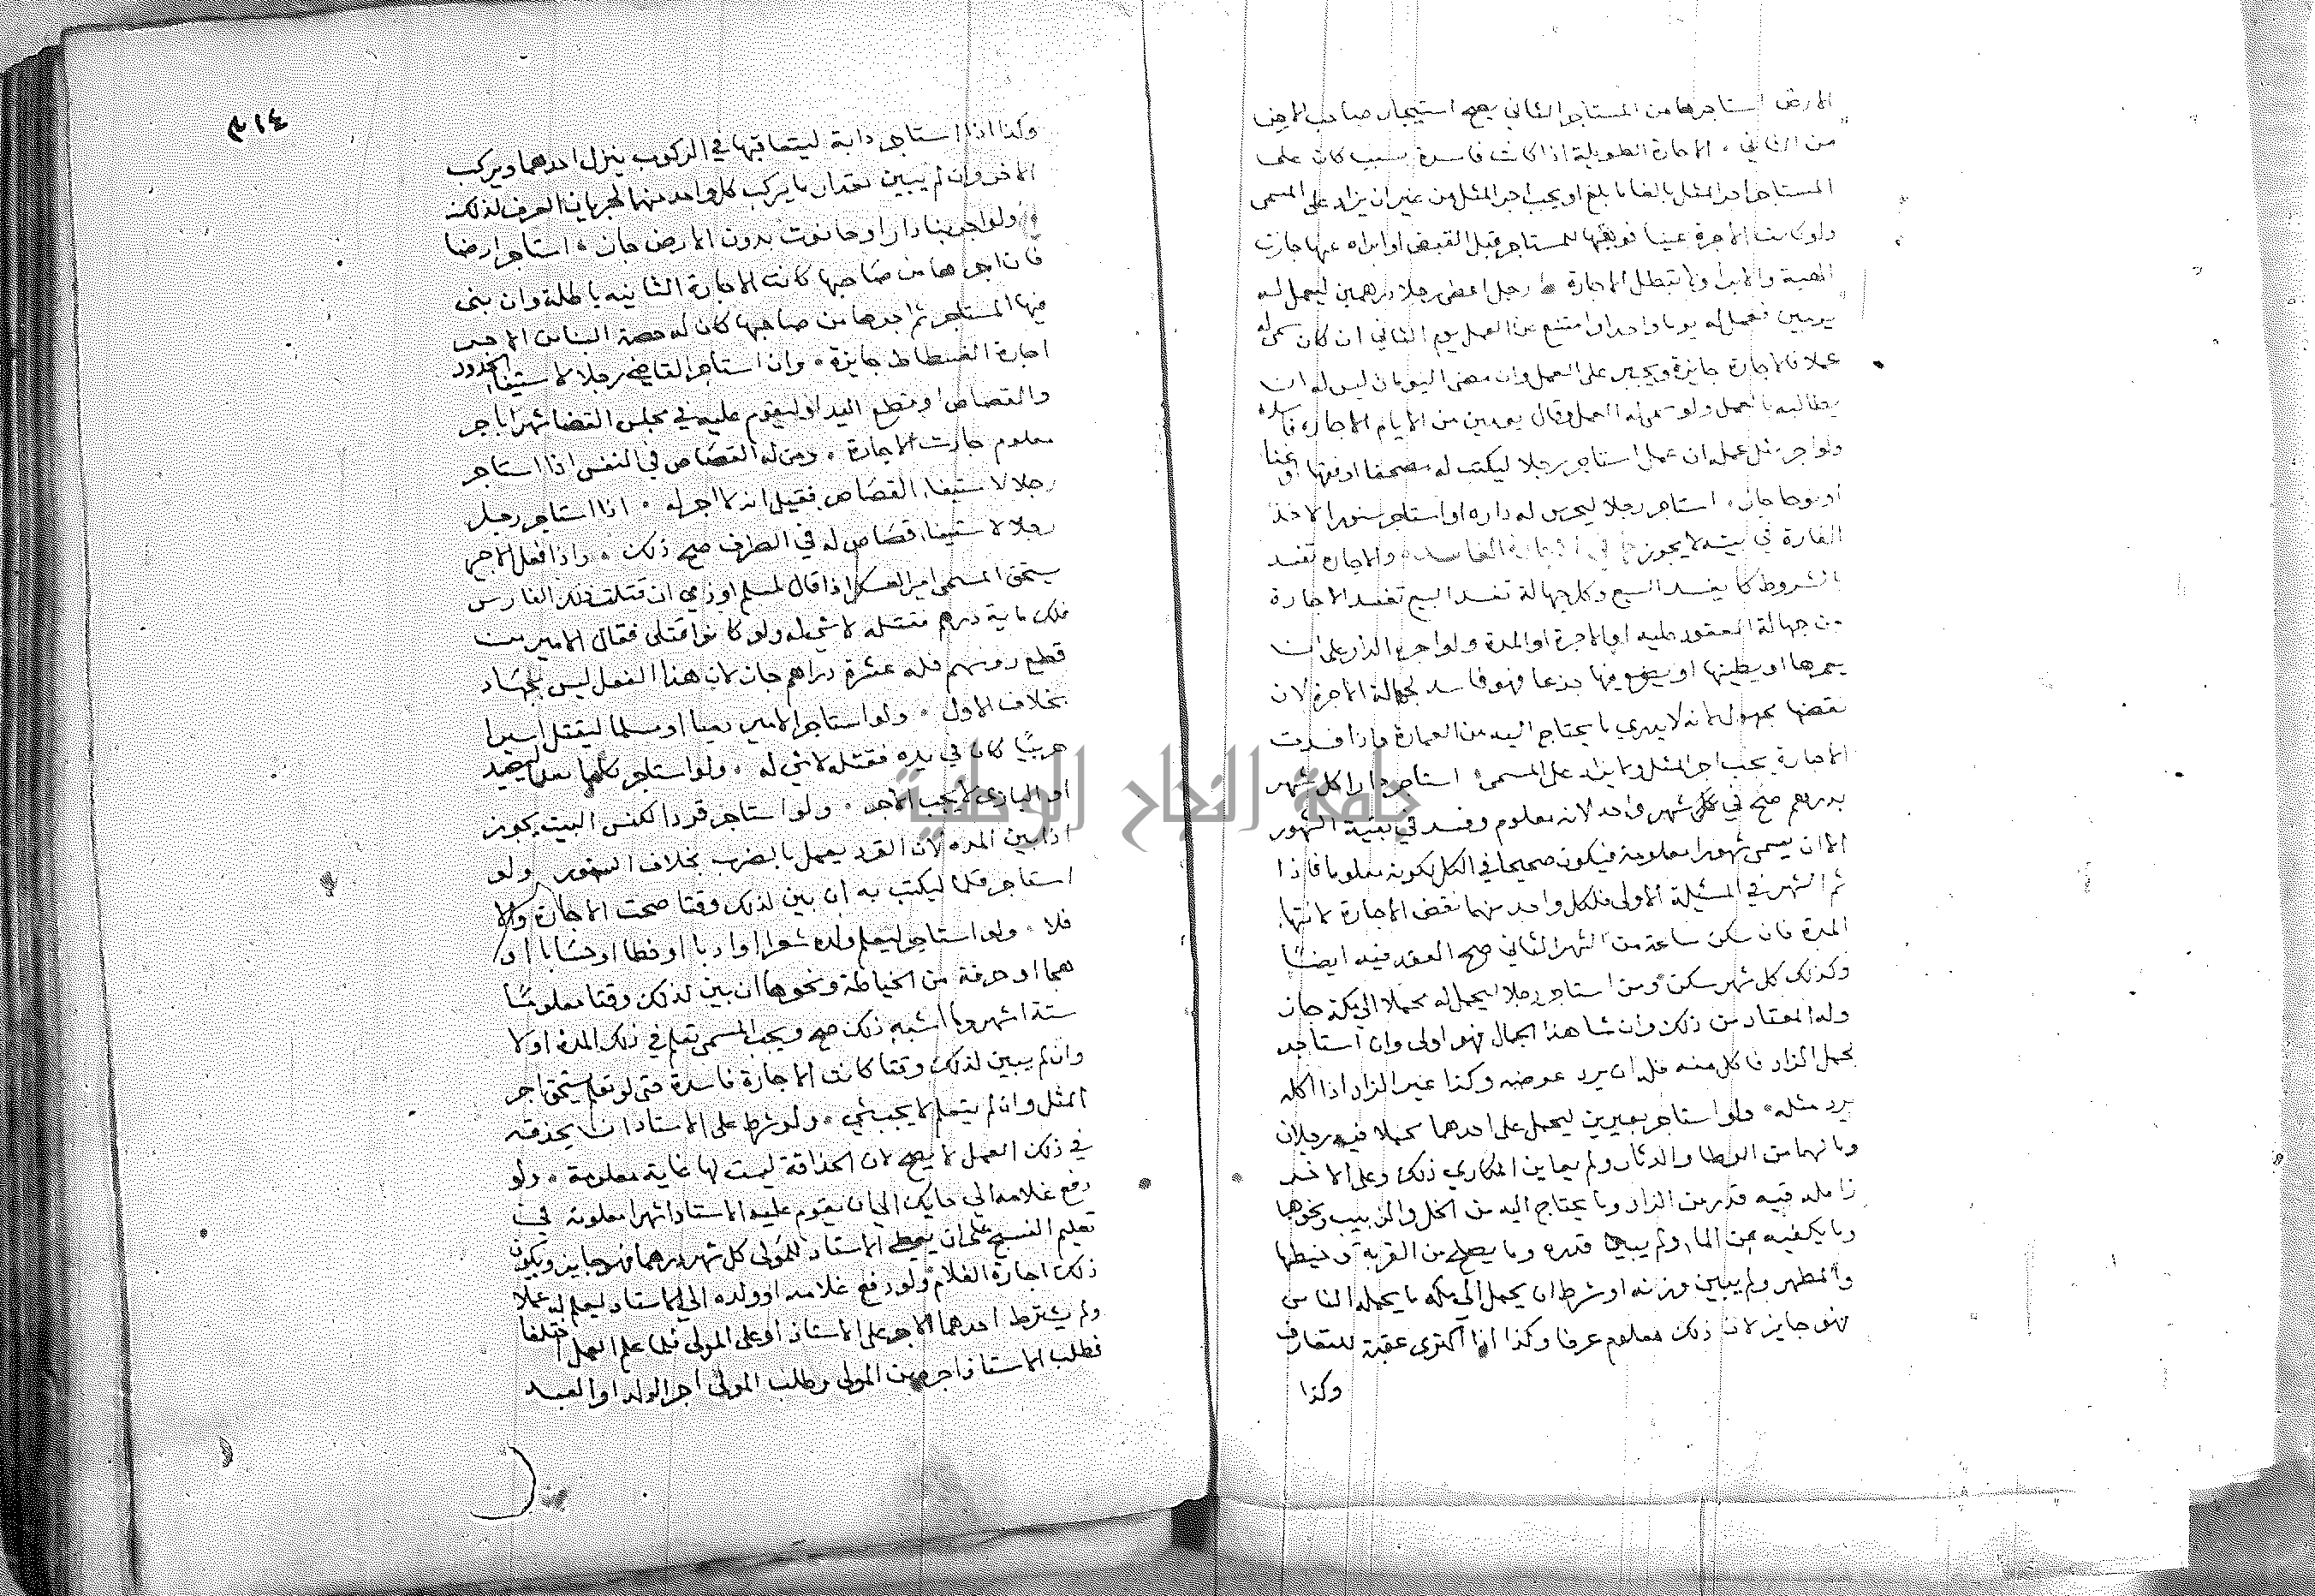 الارض استاجرها من المستاجر الثاني يصح استيجار صاحب الارض
من الثاني . الاجارة الطويلة اذا كانت فاسدة بسبب كان على
المستاجر اجر المثل بالغا ما بلغ او يجب اجر المثل من غير ان يزاد على المسمى
ولو كانت الاجرة عينا فوهبها للمستاجر قبل القبض او ابراه عنها جازت
الهبة والابرا ولا تبطل الاجارة . رجل اعطى رجلا درهمين ليعمل له
يومين فعمل له يوما واحدا وامتنع عن العمل يوم الثاني ان كان سمى له
عملا فالاجارة جايزة ويجبر على العمل وان مضى اليومان ليس له ان
يطالبه بالعمل ولو سمى له العمل وقال يومين من الايام الاجارة فاسدة
ولو اجر مثل عمله ان عمل استاجر رجلا ليكتب له مصحفا او فقها او غنا
او نوحا جاز . استاجر رجلا ليحرس له داره او استاجر سنورا لاخذ
الفارة في بيته لا يجوز في الاجارة الفاسدة والاجارة تفسد
بالشروط كما يفسد البيع وكل جهالة تفسد البيع تفسد الاجارة
من جهالة المعقود عليه او الاجرة او المدة ولو اجر الدار على ان
يعمرها او يطينها او يضع فيها جذعا فهو فاسد لجهالة الاجرة لان
بعضها مجهول لانه لا يدري ما يحتاج اليه من العمارة واذا فسدت
الاجارة يجب اجر المثل ولا يزاد على المسمى استاجر دارا كل شهر
بدرهم صح في كل شهر واحد لانه معلوم وفسد في بقية الشهور
الا ان يسمى شهورا معلومة فيكون صحيحا في الكل لكونه معلوما فاذا
تم الشهر في المسئلة الاولى فلكل واحد منهما نقض الاجارة لانتها
المدة فان سكن ساعة من الشهر الثاني صح العقد فيه ايضا
وكذلك كل شهر سكن ومن استاجر رجلا ليحمل له محملا الى مكة جاز
وله المعتاد من ذلك وان شاهد الجمال فهو اولى وان استاجر
لحمل الزاد فاكل منه فله ان يرد عوضه وكذا غير الزاد اذا اكله
يرد مثله . ولو استاجر بعيرين ليحمل على احدهما محملا فيه رجلان
وما لهما من الوطا والدثار ولم يعاين المكاري ذلك وعلى الاخر
زاملة فيه قدر من الزاد وما يحتاج اليه من الخل والزبيب ونحوها
وما يكفيه من الما ولم يبين قدره وما يصلح من القربة وخيطها
والمطهر ولم يبين وزنه او شرط ان يحمل الى مكة ما يحمله الناس
فهو جايز لان ذلك معلوم عرفا وكذا اذا اكترى عقبة للتعارف
وكذا
٣١٤
وكذا اذا استاجر دابة ليتعاقبها في الركوب ينزل احدهما ويركب
الاخر وان لم يبين مقدار ما يركب كل واحد منهما لجريان العرف لذلك
ولو اجر بنا دار او حانوت بدون الارض جاز . استاجر ارضا
فان اجرها من صاحبها كانت الاجارة الثانيه باطلة وان بنى
فيها المستاجر ثم اجرها من صاحبها كان له حصة البنا من الاجر
اجارة الفسطاط جايزة . وان استاجر القاضي رجلا لاستيفا الحدود
والقصاص او قطع اليد او ليقوم عليه في مجلس القضا شهرا باجر
معلوم جازت الاجارة . ومن له القصاص في النفس اذا استاجر
رجلا لاستيفا القصاص فقيل انه لا اجر له . اذا استاجر رجل
رجلا لاستيفا قصاص له في الطرف صح ذلك . واذا فعل الاجير
يستحق المسمى امير العسكر اذا قال لمسلم او ذمي ان قتلت ذلك الفارس
فلك ماية درهم فقتله لا شي له ولو كانوا قتلى فقال الامير من
قطع روسهم فله عشرة دراهم جاز لان هذا الفعل ليس بجهاد
بخلاف الاول . ولو استاجر الامير ذميا او مسلما ليقتل اسيرا
حربيا كان في يده فقتله لا شي له . ولو استاجر كلبا معلما للصيد
او البازى لا يجب الاجر . ولو استاجر قردا لكنس البيت يجوز
اذا بين المده لان القرد يعمل بالضرب بخلاف السنور ولو
استاجر قلما ليكتب به ان بين لذلك وقتا صحت الاجارة والا
فلا . ولو استاجر ليعلم ولده شعرا او ادبا او خطا او حسابا او
هجا او حرفة من الخياطة ونحوها ان بين لذلك وقتا معلوما
ستة اشهر وما اشبه ذلك صح ويجب المسمى تعلم في ذلك المدة او لا
وان لم يبين لذلك وقتا كانت الاجارة فاسدة حتى لو تعلم يستحق اجر
المثل وان لم يتعلم لا يجب شي . ولو شرط على الاستاد ان يحذقه
في ذلك العمل لا يصح لان الحذاقة ليست لها غاية معلومة . ولو
دفع غلامه الى حايك الى ان يقوم عليه الاستاد اشهرا معلومة في
تعليم النسج على ان يعطي الاستاد للمولى كل شهر درهما فهو جايز ويكون
ذلك اجارة الغلام ولو دفع غلامه او ولده الى الاستاد ليعلم له عملا
ولم يشترط احدهما الاجر على الاستاذ او على المولى فلما علم العمل اختلفا
فطلب الاستاذ اجره من المولى وطلب المولى اجر الولد او العبد
جامعة النجاح الوطنية